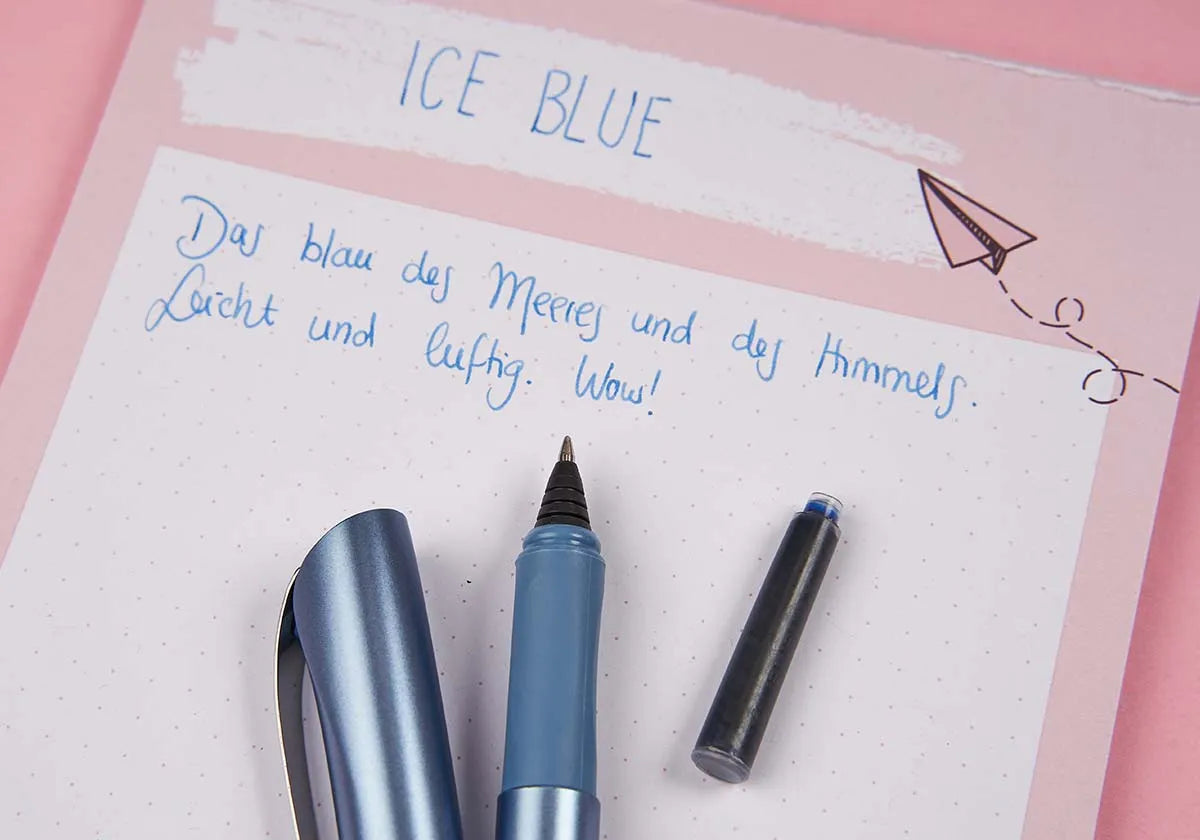 ICE BLUE
Das blau des Meeres und des Himmels.
Leicht und luftig. Wow!